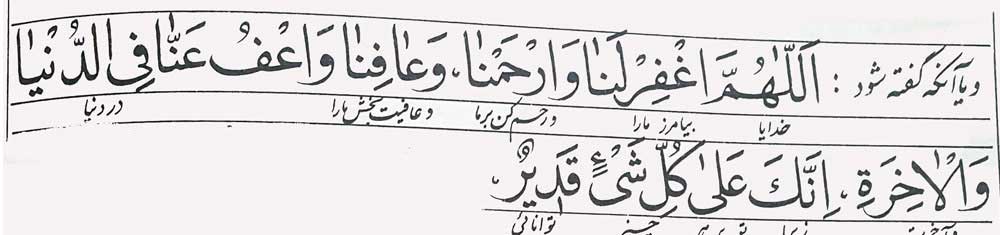 و یا آنکه گفته شود : اَللّٰهُمَّ اغْفِرْ لَنٰا وَارْحَمْنٰا، وَعٰافِنٰا وَاعْفُ عَنّٰا فِی الدُّنْیٰا
خدایا بیامرز مارا و رحم کن بر ما و عافیت بخش مارا در دنیا
وَالْاٰخِرَةِ ، اِنَّكَ عَلیٰ كُلِّ شَیْءٍ قَدیرٌ ،
توانائی